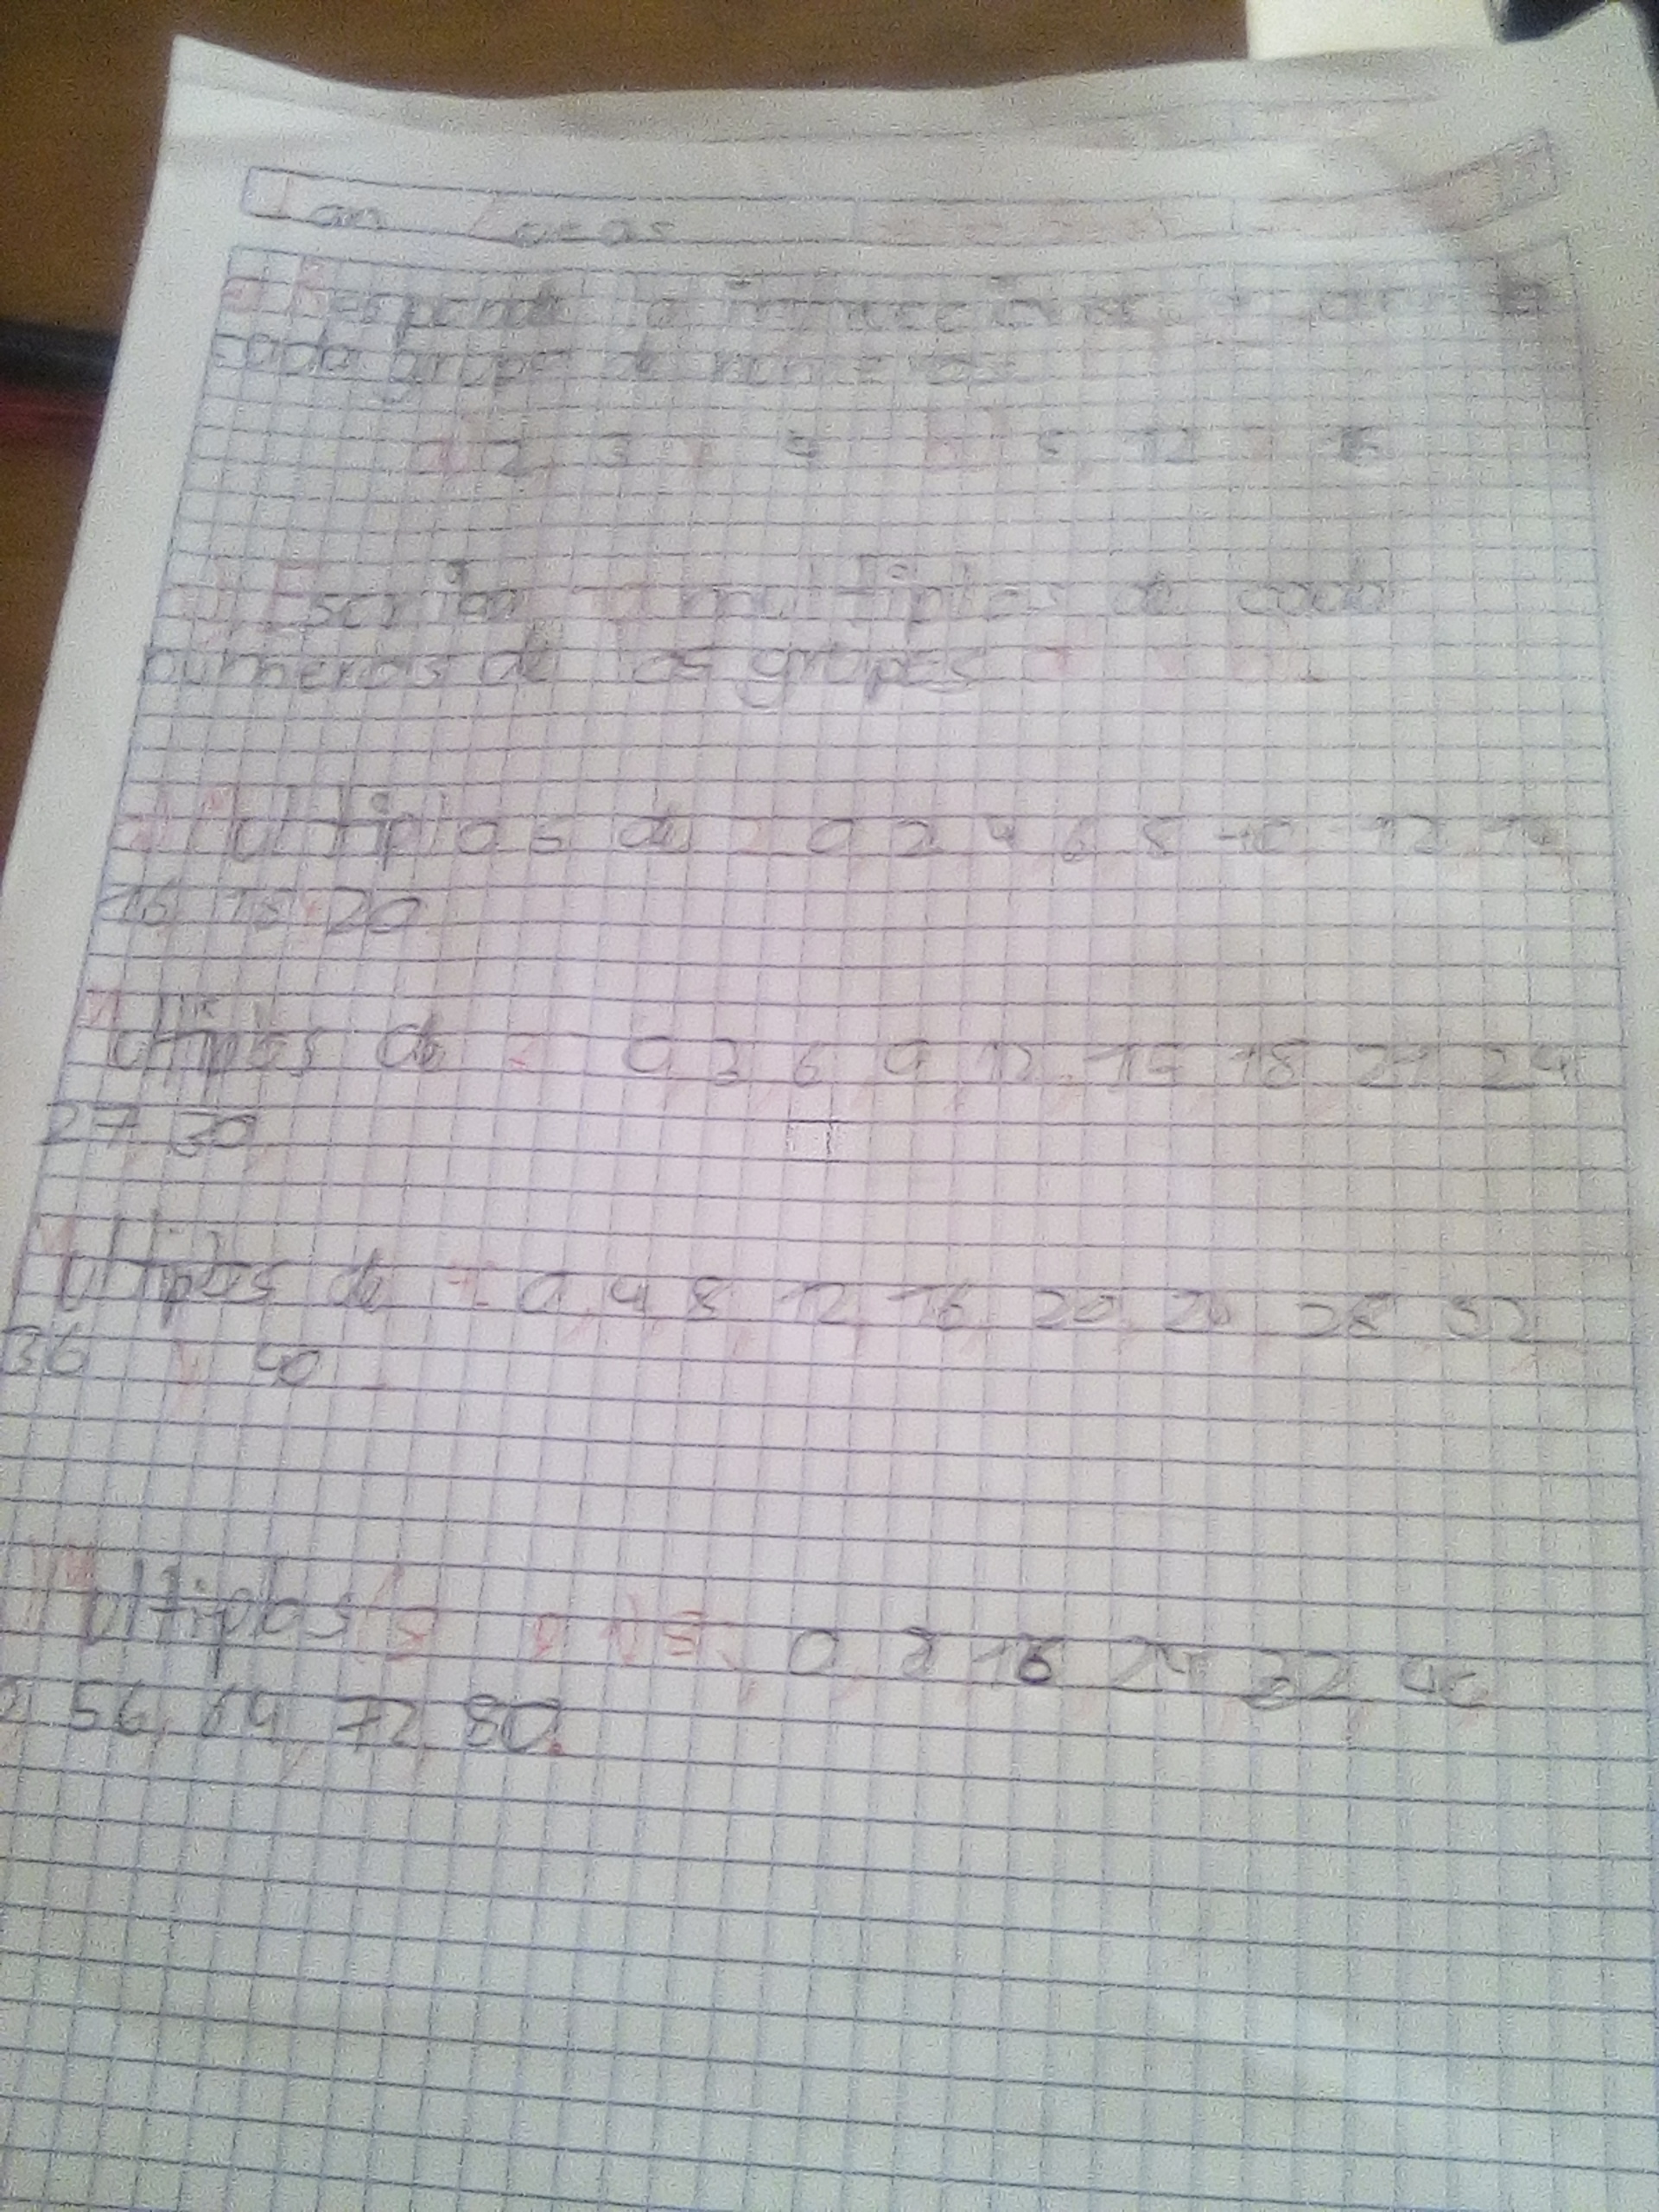 Ian Lucas
Responde la
cada grupo de números
a) 2, 3 y 4 b) 8, 12 y
Escriba multiplos de cada
números de los grupos a y b.
a) Multiplos de 2 0, 2, 4, 6, 8, 10, 12, 14,
16, 18 y 20
Multiplos de 0, 3, 6, 9, 12, 15, 18, 21, 24
27, 30
Multiplos de 4: 0, 4, 8, 12, 16, 20, 24, 28, 32,
36 y 40.
Multiplos 0, 8, 16, 24, 32, 40,
56, 64, 72, 80.